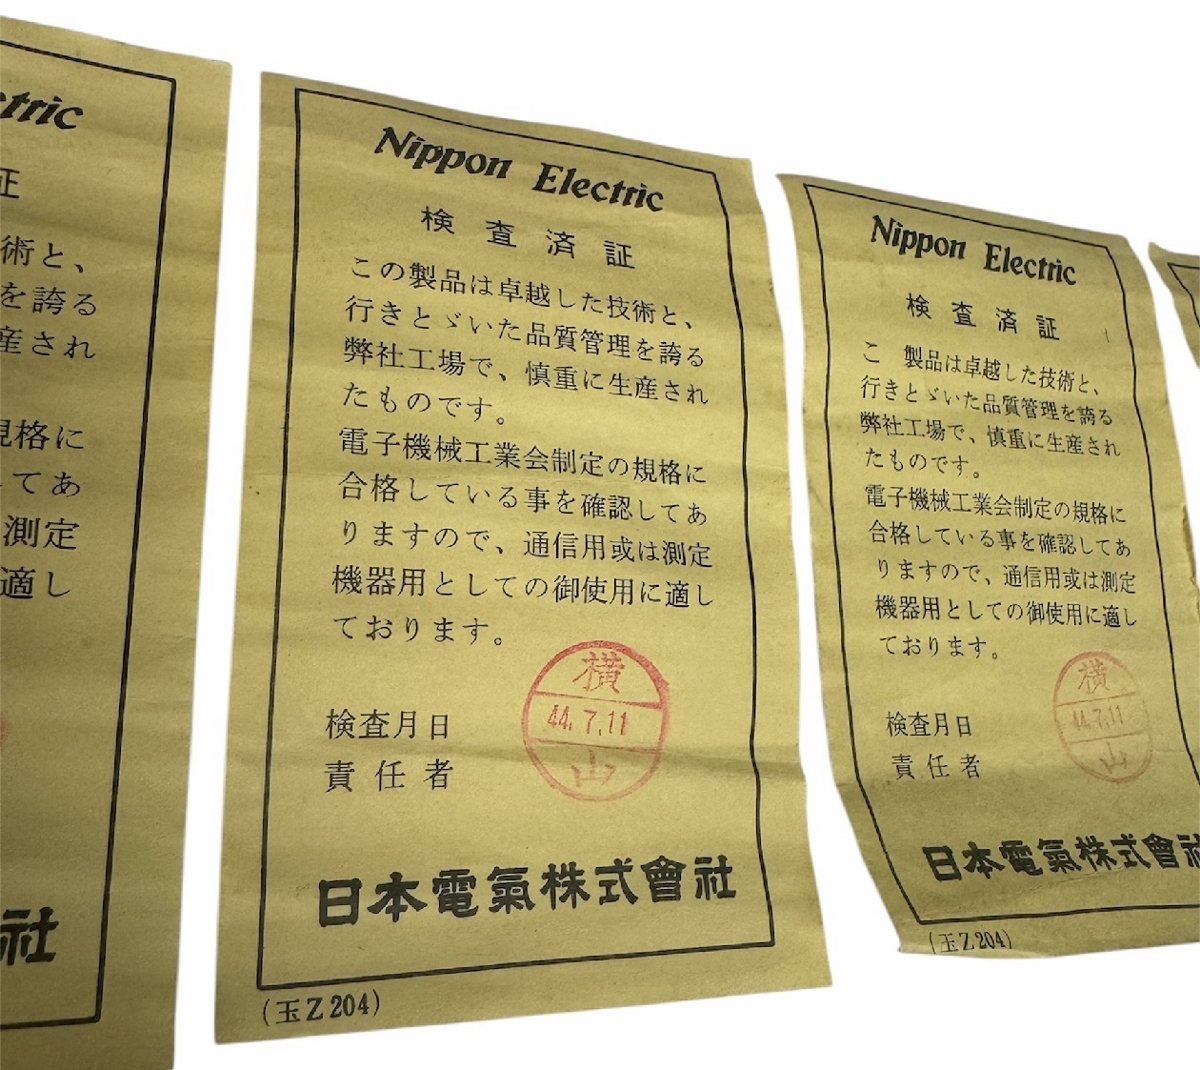 ctric
証
術と、
を誇る
産され
規格に
てあ
測定
適し
社
Nippon Electric
検査済証
この製品は卓越した技術と、
行きとゞいた品質管理を誇る
弊社工場で、慎重に生産され
たものです。
電子機械工業会制定の規格に
合格している事を確認してあ
りますので、通信用或は測定
機器用としての御使用に適し
ております。
検査月日
責任者
横
44.7.11
山
日本電氣株式會社
(玉Z204)
Nippon Electric
検査済証
こ 製品は卓越した技術と、
行きとゞいた品質管理を誇る
弊社工場で、慎重に生産され
たものです。
電子機械工業会制定の規格に
合格している事を確認してあ
りますので、通信用或は測定
機器用としての御使用に適し
ております。
検査月日
責任者
横
44.7.11
山
日本電氣株式會社
(玉Z204)